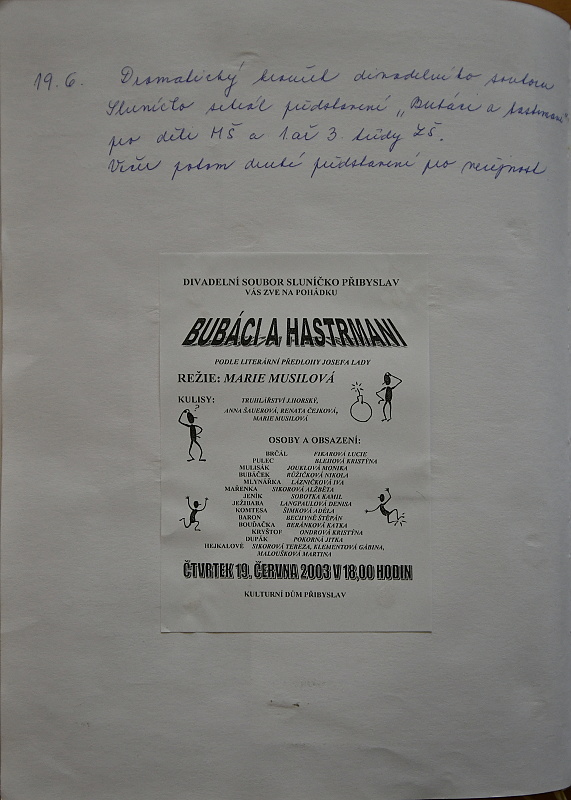 19.6. Dramatický kroužek divadelního souboru
Sluníčko sehrál představení „Bubáci a hastrmani"
pro děti MŠ a 1. až 3. třídy ZŠ.
Večer potom druhé představení pro veřejnost
DIVADELNÍ SOUBOR SLUNÍČKO PŘIBYSLAV
VÁS ZVE NA POHÁDKU
BUBÁCI A HASTRMANI
PODLE LITERÁRNÍ PŘEDLOHY JOSEFA LADY
REŽIE: MARIE MUSILOVÁ
KULISY: TRUHLÁŘSTVÍ J.HORSKÝ,
ANNA ŠAUEROVÁ, RENATA ČEJKOVÁ,
MARIE MUSILOVÁ
OSOBY A OBSAZENÍ:
BRČÁL FIKAROVÁ LUCIE
PULEC BLEHOVÁ KRISTÝNA
MULISÁK JOUKLOVÁ MONIKA
BUBÁČEK RŮŽIČKOVÁ NIKOLA
MLYNÁŘKA LÁZNIČKOVÁ IVA
MAŘENKA SIKOROVÁ ALŽBĚTA
JENÍK SOBOTKA KAMIL
JEŽIBABA LANGPAULOVÁ DENISA
KOMTESA ŠIMKOVÁ ADÉLA
BARON BECHYNĚ ŠTĚPÁN
BOUĎAČKA BERÁNKOVÁ KATKA
KRYŠTOF ONDROVÁ KRISTÝNA
DUPÁK POKORNÁ JITKA
HEJKALOVÉ SIKOROVÁ TEREZA, KLEMENTOVÁ GÁBINA,
MALOUŠKOVÁ MARTINA
ČTVRTEK 19. ČERVNA 2003 V 18,00 HODIN
KULTURNÍ DŮM PŘIBYSLAV